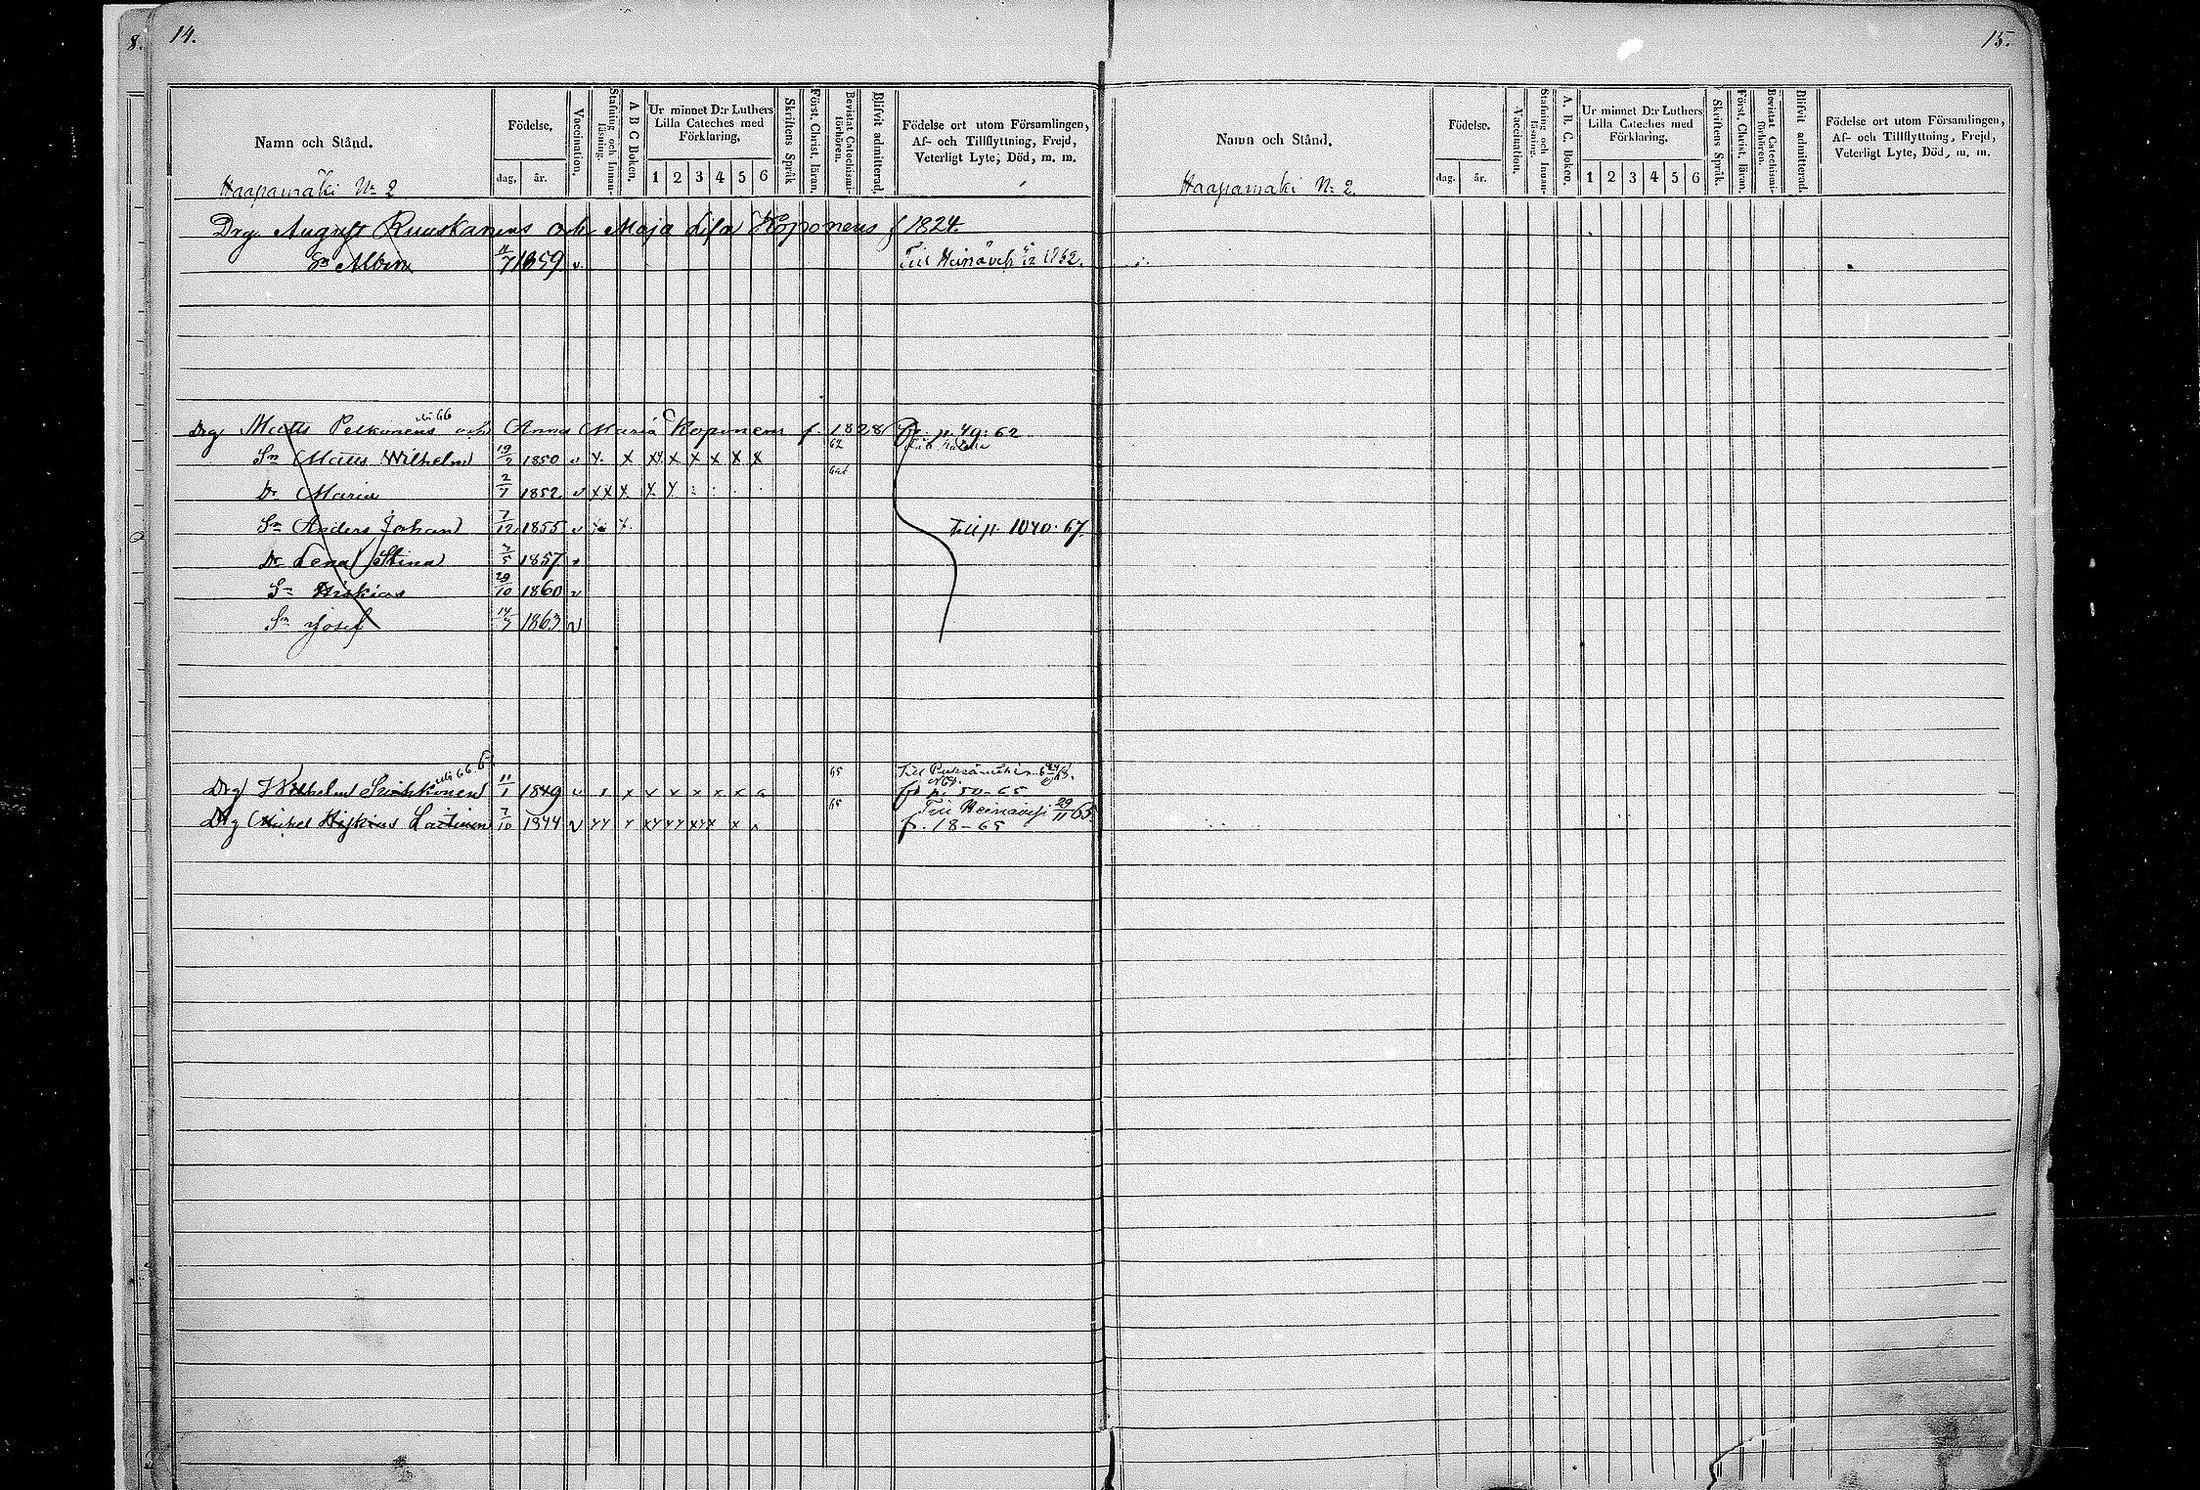 8.
14.
15.
Namn och Stånd.
Födelse,
dag, år.
Vaccination,
Stafning och Innan-läsning.
A B C Boken,
Ur minnet D:r Luthers Lilla Cateches med Förklaring,
1 2 3 4 5 6
Skriftens Språk
Först. Christ. läran.
Bevistat Catechismi-förhören.
Blifvit admitterad.
Födelse ort utom Församlingen,
Af- och Tillflyttning, Frejd,
Veterligt Lyte, Död, m. m.
Haapamäki N: 2
Drg. August Ruuskanens och Maja Lisa Koponens f 1824.
Sn Albin 11/7 1859 v. Till Heinävesi 1862.
Drg Matts Pelkonens och Anna Maria Koponens f. 1828 fr. p. 49: 62
Sn Matts Wilhelm 19/2 1850 v x. x x x x x x x 62
Dr Maria 2/7 1852 v x x x x x
Sn Anders Johan 7/12 1855 v x x. Till p. 1040. 67.
Dr Lena Stina 1857 v
Sn Hiskias 29/10 1860 v
Sn Josef 1863 v
Drg Wilhelm 11/1 1849 v x x x x x x x 65 fr p. 50-65
Drg Mickel Hiskias Laitinen 7/10 1844 v 65 Till Heinävesi 29/11 65
f. 18-65
Namn och Stånd.
Födelse.
dag. år.
Vaccination.
Stafning och Innan-läsning.
A. B. C. Boken.
Ur minnet D:r Luthers Lilla Cateches med Förklaring.
1 2 3 4 5 6
Skriftens Språk.
Först. Christ. läran.
Bevistat Catechismi-förhören.
Blifvit admitterad.
Födelse ort utom Församlingen,
Af- och Tillflyttning, Frejd,
Veterligt Lyte, Död, m. m.
Haapamäki N: 2.